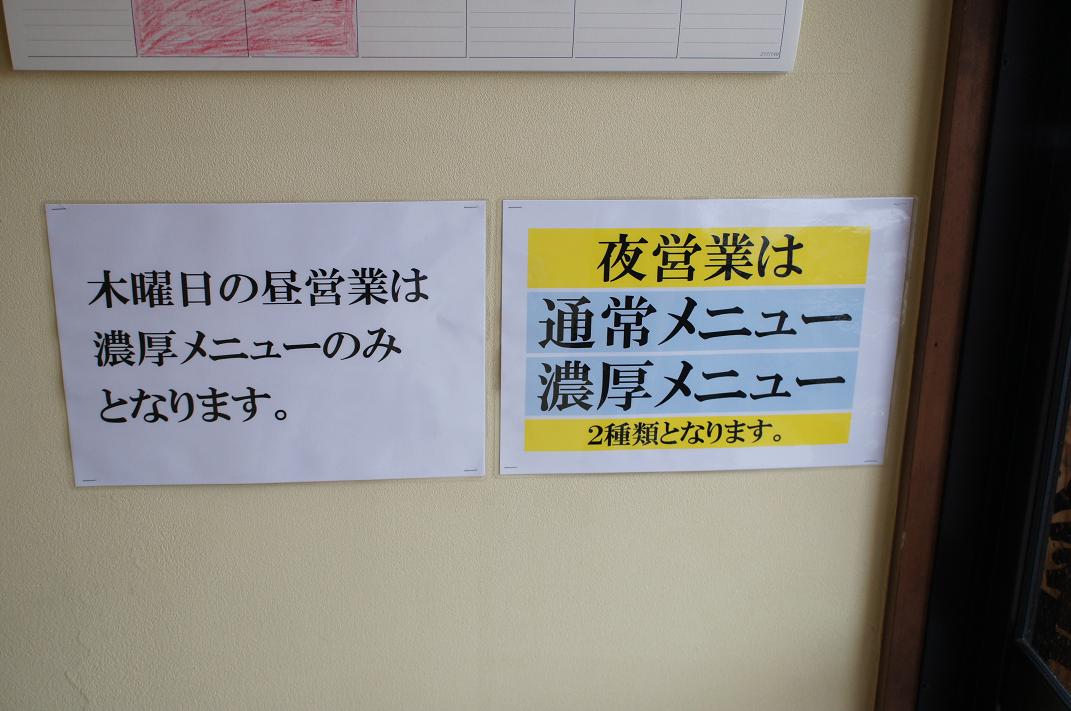 木曜日の昼営業は
濃厚メニューのみ
となります。
夜営業は
通常メニュー
濃厚メニュー
2種類となります。